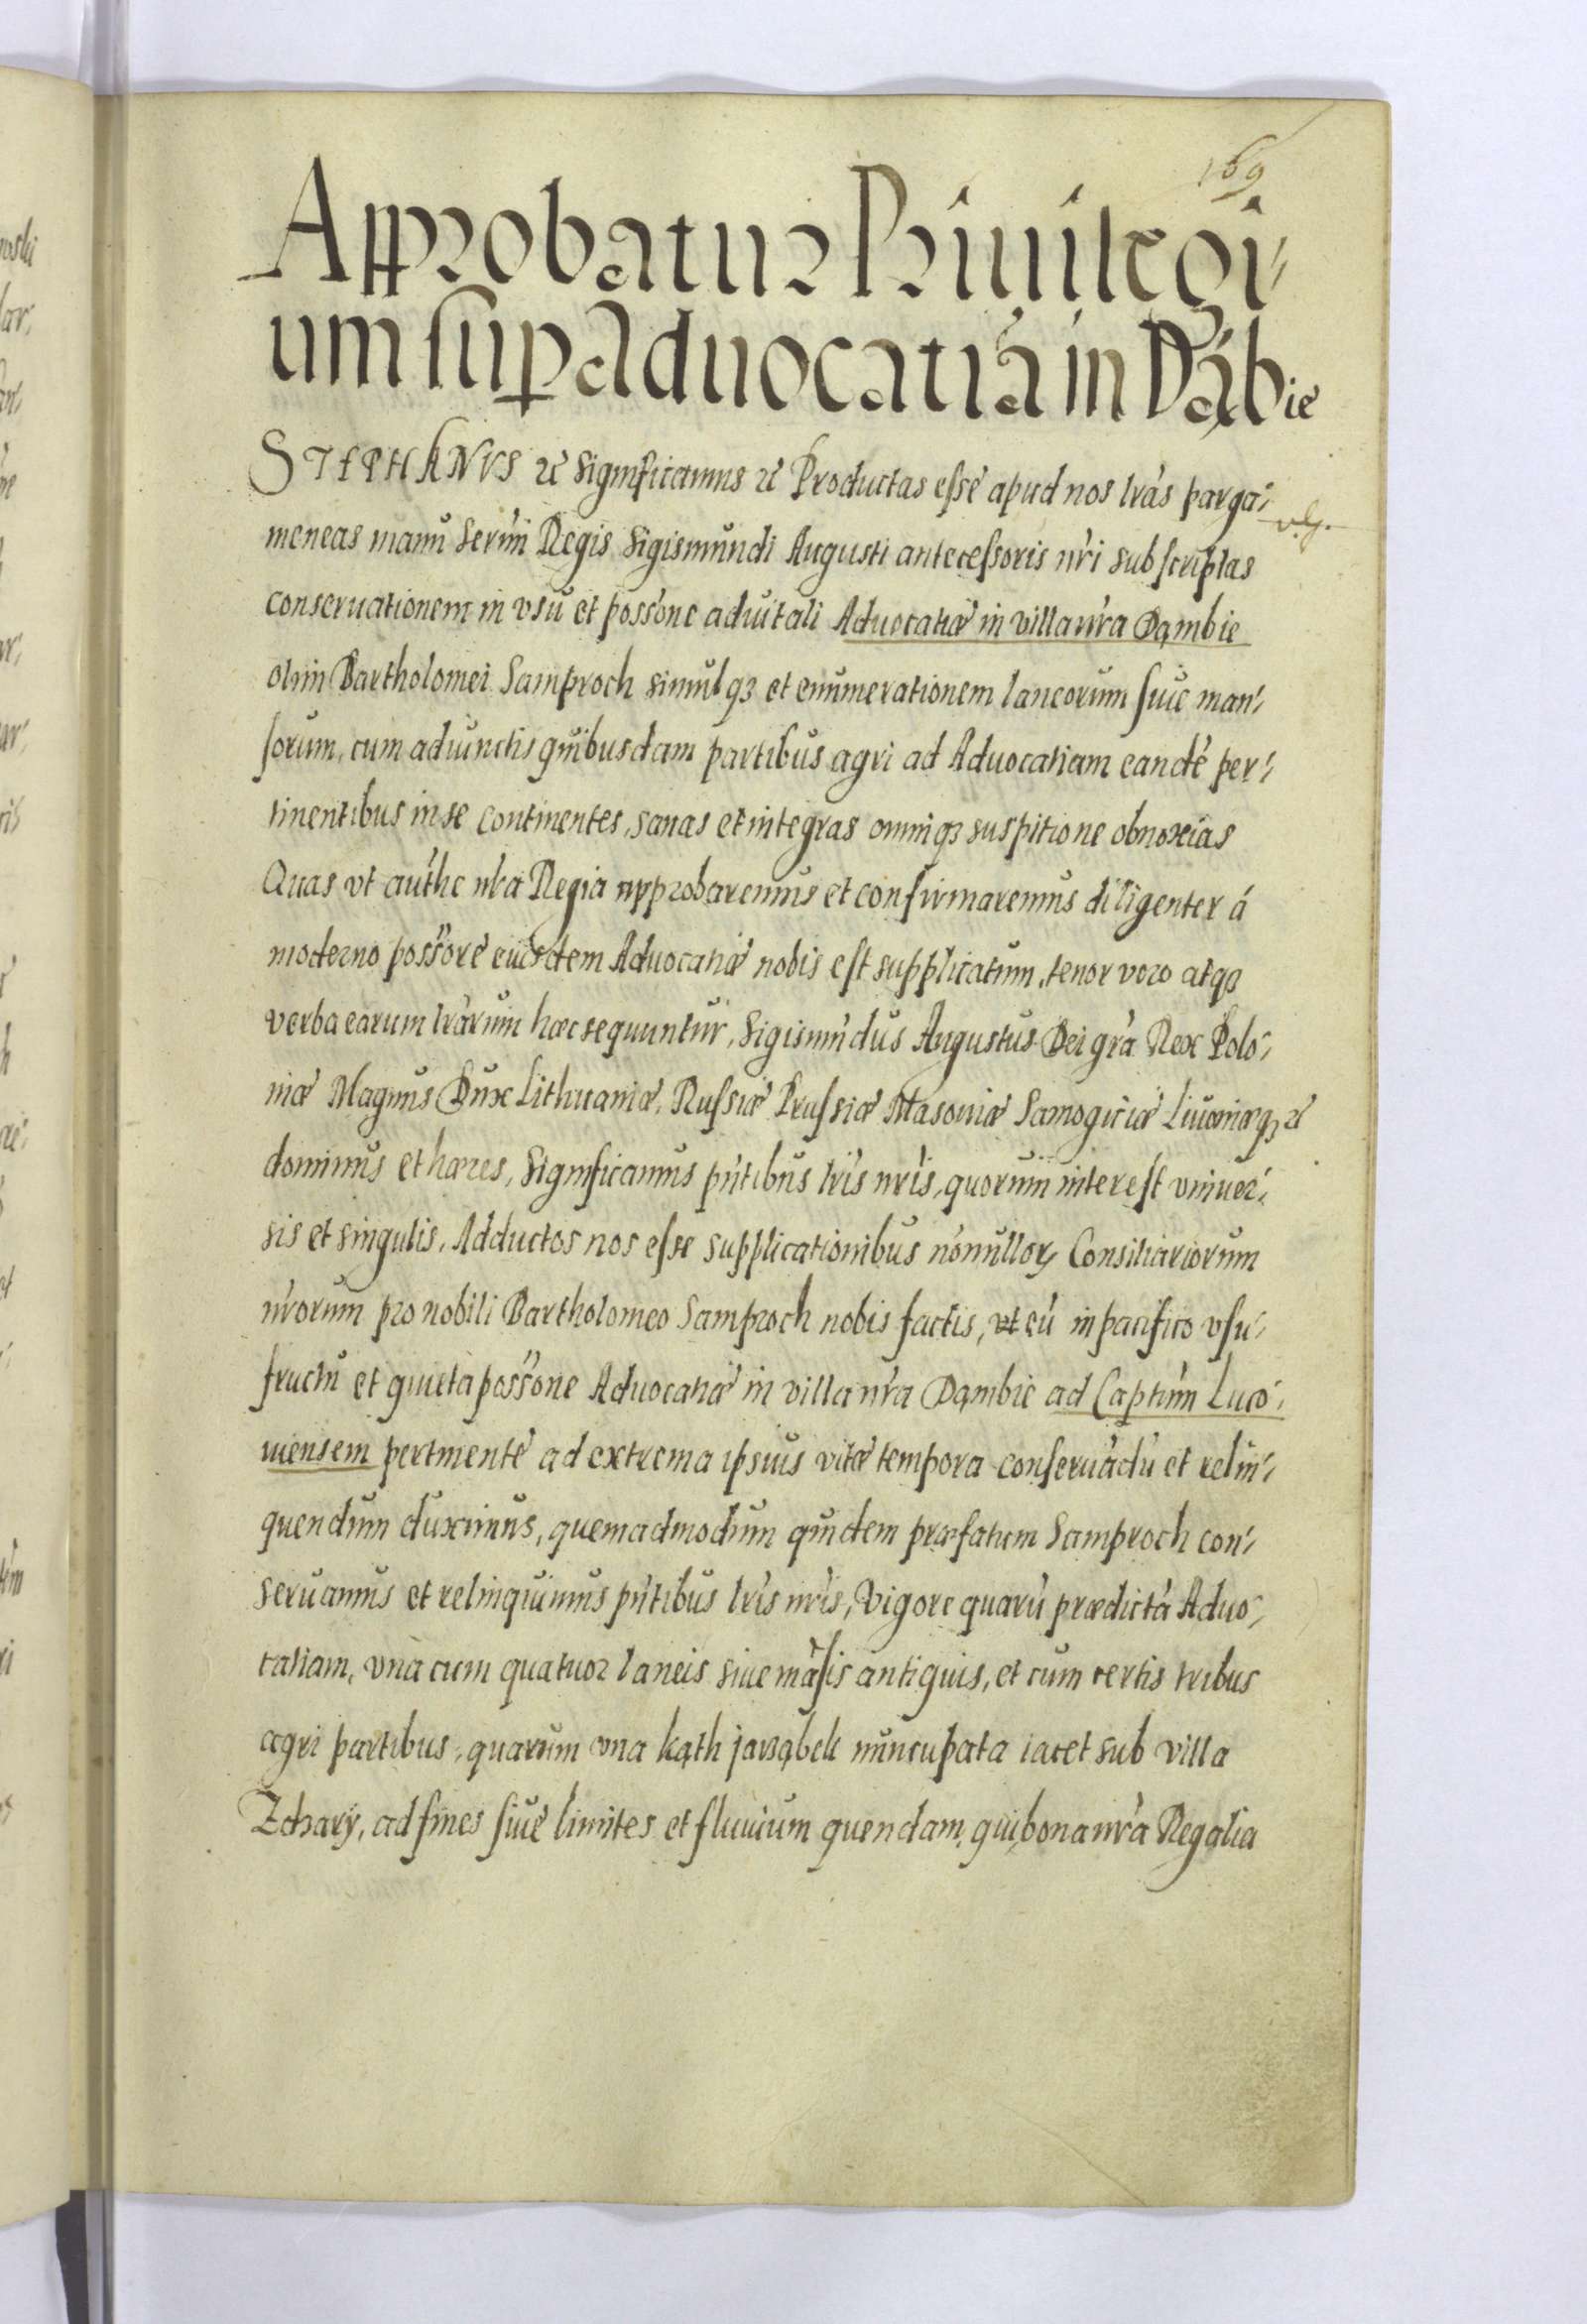 169
Approbatur Priuilegi-
um sup Aduocatiã in Dąbie
STEPHANVS etc Significamus etc Productas esse apud nos lrás parga-
meneas manu Sermi Regis Sigismundi Augusti antecessoris nri subscriptas
conseruationem in vsu et possone aduitali Aduocatiæ in villa nra Dąmbie
olim Bartholomei Samproch simulq3 et enumerationem laneorum siue man-
sorum, cum adiunctis quibusdam partibus agri ad Aduocatiam eandẽ per-
tinentibus in se continentes, sanas et integras omniq3 suspitione obnoxias
Quas vt authe nra Regia approbaremus et confirmaremus diligenter á
moderno possore eiusdem Aduocatiæ nobis est supplicatum, tenor vero atq3
verba earum lrarum hæc sequuntur, Sigismũdus Augustus Dei gra Rex Polo-
niæ Magnus Dux Lithuaniæ, Russiæ Prussiæ Masouiæ Samogitiæ Liuoniæq3 etc
dominus et hæres, Significamus pñtibus lris nris, quorum interest vniuer-
sis et singulis, Adductos nos esse supplicationibus nonullor Consiliariorum
nrorum pro nobili Bartholomeo Samproch nobis factis, vt eũ in pacifico vsu-
fructu et quieta possone Aduocatiæ in villa nra Dąmbie ad Captum Luco-
uiensem pertinentẽ ad extrema ipsius vitæ tempora conseruãdũ et relin-
quendum duximus, quemadmodum quidem præfatum Samproch con-
seruamus et relinquimus pñtibus lris nris, Vigore quarũ prædictã Aduo-
catiam, vna cum quatuor laneis siue mãsis antiquis, et cum certis tribus
agri partibus, quarum vna kąth jarząbek nuncupata iacet sub villa
Zdzary, ad fines siue limites et fluuium quendam, qui bona nra Regalia